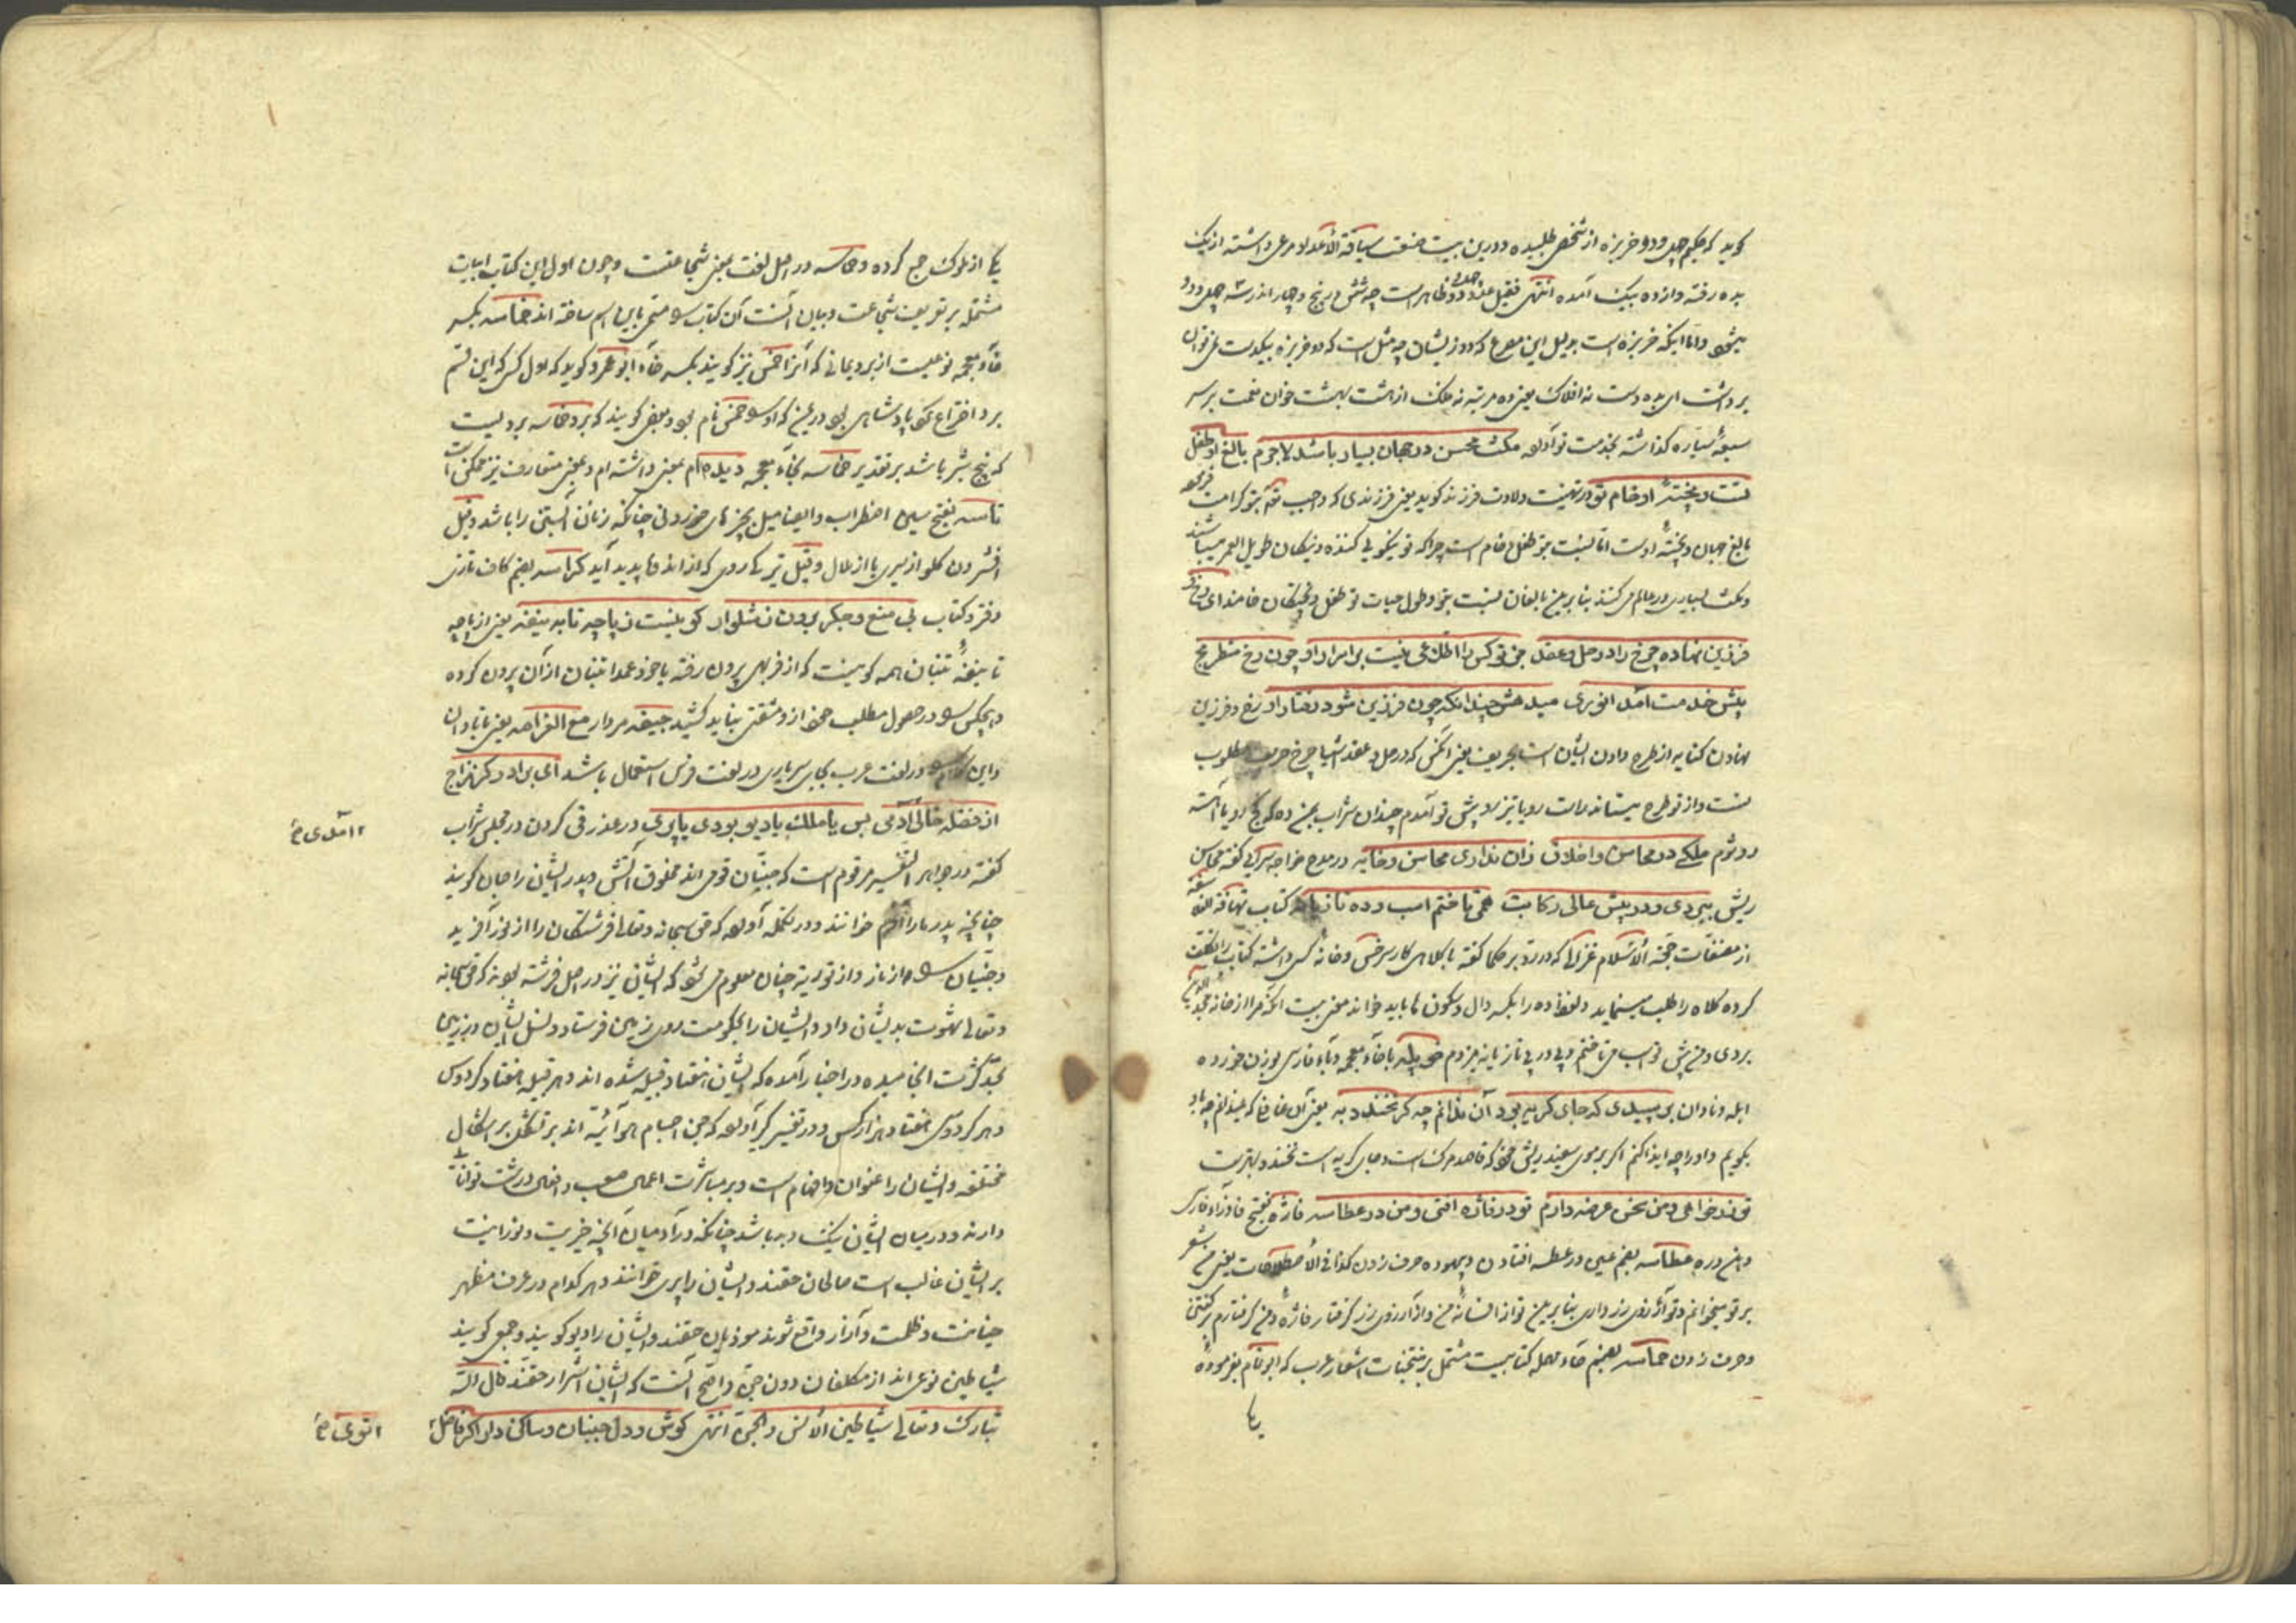 گوید که حکیم چهل و دو خربزه از شخصی طلبیده و درین بیت صنعت سیاقة الاعداد مرعی داشته از یک
بده رفته و از ده بیک آمده انتهی فقیر عدد چهل و دو ظاهر است چه شش و پنج و چهار اند رسه چهل و دو
میشود و اما اینکه خربزه است بدلیل این مصرع که دو زیشان چه مثل است که دو خربزه بیکدست نتوان
برداشت ای بده دست نه افلاک یعنی ده مرتبه نه فلک از هشت بهشت خوان نعمت بر سر
سبعهٔ سیاره گذاشته بخدمت تو آورد مکث محسن در جهان بسیار باشد لاجرم بالغ او طفل
تست و پختهٔ او خام تو در تهنیت ولادت فرزند گوید یعنی فرزندی که واجب تو کرامت فرمود
بالغ جهان و پختهٔ اوست اما نسبت بتو طفل و خام است چرا که تو نیکویی کننده و نیکان طویل العمر میباشند
و مکث بسیاری در عالم میکنند بنابرین بالغان نسبت بتو و طول حیات تو طفل و پختگان خامند ای رخ
فرزین نهاده چرخ را در حل و عقد جز تو کس را اطلاعی نیست بر اسرار او چون رخ شطرنج
پیش خدمت آمد انوری میدهش چندانکه چون فرزین شود رفتار او رخ و فرزین
نهادن کنایه از طرح دادن ایشان است بحریف یعنی ای آنکس که در حل و عقد اشیا چرخ حریف مغلوب
تست و از تو طرح میستاند راست رو یا تیز رو پیش تو آمدم چندان شراب بمن ده که کج رو یا آهسته
رو شوم ملکی در محاسن و اخلاق زان نداری محاسن و خایه در مدح خواجه سرایی گفته محاسن
ریش ببردی و در پیش عالی رکابت همی تاختم اسب و ده تازیانه کتاب تهافة الفلاسفه
از مصنفات حجة الاسلام غزالی که در رد بر حکما گفته با کلاهی کار سرخس و خانهٔ کسی داشته کتاب را
کرده کلاه را طلب مینماید و لفظ ده را بکسر دال و سکون ها باید خواند معنی بیت آنکه مرا از خانه
بردی و من پیش تو اسب می تاختم و پی در پی تازیانه میزدم خوپله با خاء معجمه و باء فارسی بوزن خورده
ابله و نادان بر سپیدی که جای گریه بود آن ندانم چه کر نخندد به یعنی آن غافل که نمیدانم چه باو
بگویم و او را چه ایذا کنم اگر بر موی سفید ریش خود که قاصد مرگ است و جای گریه است نخندد بهتر است
تو زر خواهی و من سخن عرضه دارم تو در فاژه افتی و من در عطاسه فاژه بفتح فا و زاء فارسی
دهن دره عطاسه بضم عین در عطسه افتادن و بیهوده حرف زدن کذا فی الاصطلاحات یعنی من شعر
بر تو میخوانم و تو آرزوی زر داری بنابرین تو از افسانهٔ من و از آرزوی زر گرفتار فاژه و من گرفتارم بگفتن
و حرف زدن حماسه بضم حاء مهمله کتابیست مشتمل بر منتخبات اشعار عرب که ابو تمام بفرمودهٔ
یکی
یکی از ملوک جمع کرده و حماسه در اصل لغت بمعنی شجاعت و چون اول این کتاب ابیات
مشتمل بر تعریف شجاعت و بیان آنست آن کتاب را مسمی باین اسم ساخته اند خماسه بکسر
خاء معجمه نوعیست از برد یمانی که آنرا خمس نیز گویند بکسر خاء ابو عمرو گوید که اول کسی که این قسم
برد اختراع کرد پادشاهی بود در یمن که او را خمس نام بود و بعضی گویند که برد خماسه بردیست
که پنج شبر باشد بر تقدیر خماسه بخاء معجمه دیده ام بمعنی داشته ام و بمعنی متعارف نیز ممکن است
تاسه بفتح سین اضطراب و ایضا میل بچیزهای خوردنی چنانکه زنان آبستن را باشد و قیل
افشردن گلو از سیری یا از ملال و قیل تیرگی روی که از اندوه پدید آید کراسه بضم کاف تازی
دفتر و کتاب بی منع و جگر برون ز شلوار کو بیست ز پاچه تا به نیفه یعنی از پاچه
تا نیفهٔ تنبان همه کو بیست که از فربهی برون رفته یا خود عمدا تنبان از آن برون کرده
و هیچکس را در حصول مطلب خود از و مشقتی نباید کشید جیفه مردار مع الغرامه یعنی با تاوان
و این کلام را در لغت عرب بجای سرباری در لغت فرس استعمال باشد ای برادر گر مزاج
از فضله خالی آدمی بس یا ملک یا دیو بودی یا پری در عذر قی کردن در مجلس شراب
گفته در جواهر التفسیر مرقوم است که جنیان قومی اند مخلوق آتش و پدر ایشان را جان گویند
چنانچه پدر ما را آدم خوانند و در تکمله آورده که حق سبحانه و تعالی فرشتگان را از نور آفرید
و جنیان را از نار و از توریة چنان معلوم میشود که ایشان نیز در اصل فرشته بودند که حق سبحانه
و تعالی شهوت بدیشان داد و ایشان را بحکومت روی زمین فرستاد و نسل ایشان در زمین
بحد کثرت انجامیده و در اخبار آمده که ایشان هفتاد قبیله شده اند و هر قبیله هفتاد کردوس
و هر کردوسی هفتاد هزار کس و در تفسیر کبر آورده که جن اجسام هوائیه اند بر تشکل بر اشکال
مختلفه و ایشان را عنوان و افهام است و بر مباشرت اعمال صعب و افعال درشت توانا
دارند و در میان ایشان نیک و بد باشد چنانکه در آدمیان آنچه خیریت و نورانیت
بر ایشان غالب است صالحان جنند و ایشان را پری خوانند و هر کدام در عرف مظهر
خباثت و ظلمت و آزار واقع شوند موذیان جنند و ایشان را دیو گویند و جمعی گویند
شیاطین نوعی اند از مکلفان دون جن و اصح آنست که ایشان اشرار جنند قال الله
تبارک و تعالی شیاطین الانس و الجن انتهی گوش و دل جنبان و ساکن دار اگر فاضل
آمدی خ
توی خ